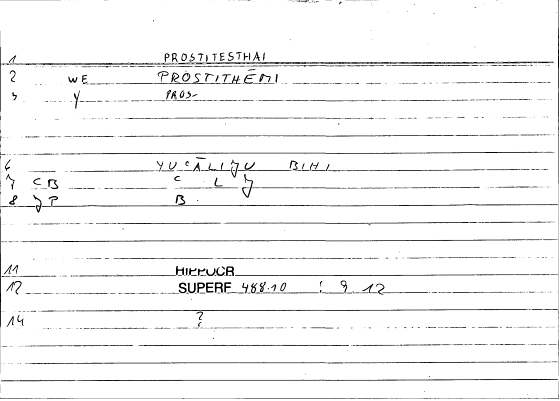 1 PROSTITESTHAI
2 WE PROSTITHĒMI
3 Y PROS-
6 YUCĀLIJU BIHI
7 CB C L J
8 JP B
11 HIPPOCR
12 SUPERF 488.10 : 9 12
14 ?